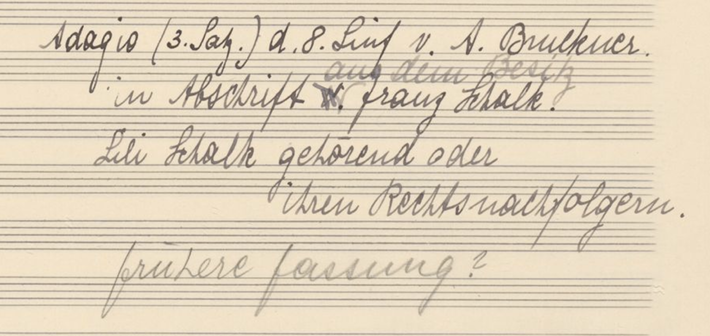 Adagio (3. Saz.) d. 8. Sinf v. A. Bruckner.
aus dem Besitz
in Abschrift v. Franz Schalk.
Lili Schalk gehörend oder
ihren Rechtsnachfolgern.
frühere Fassung?